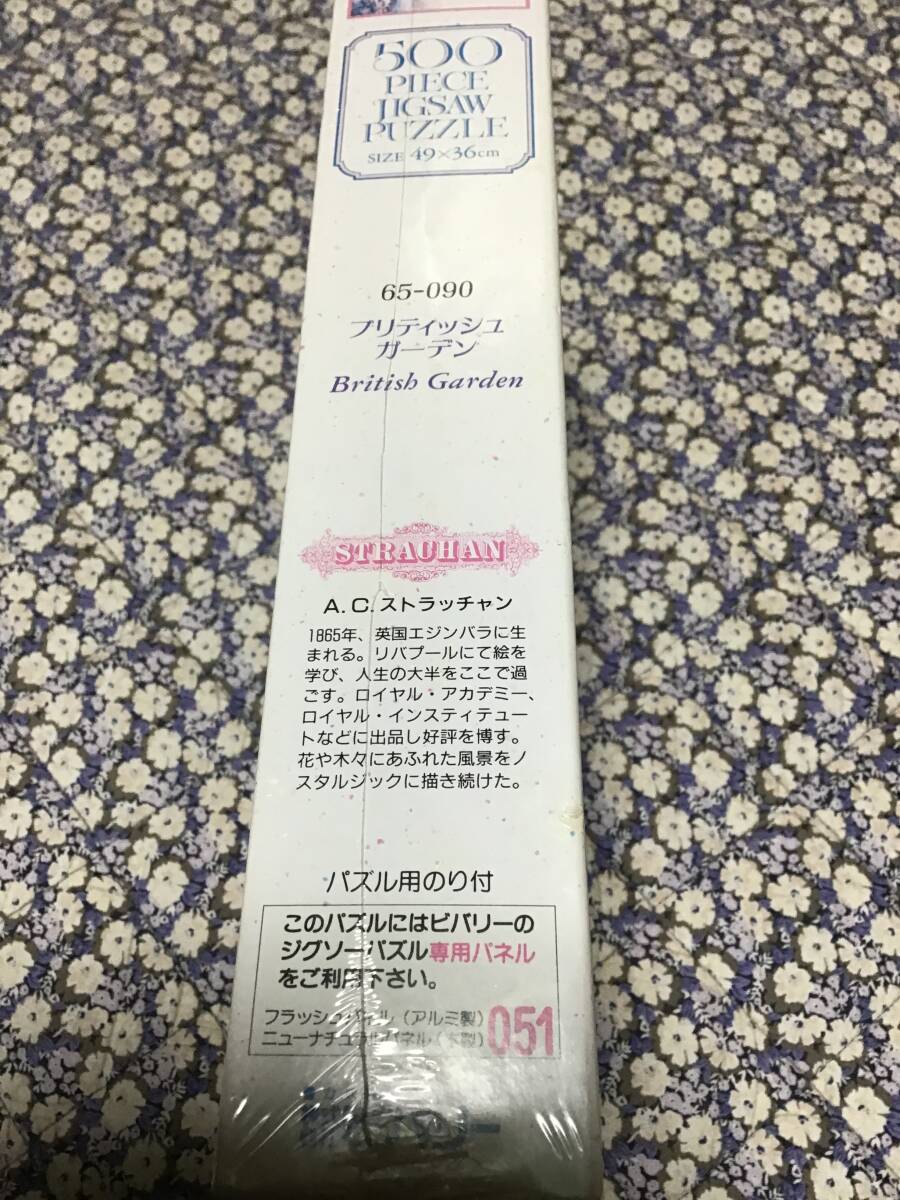 500
PIECE
JIGSAW
PUZZLE
SIZE 49×36cm
65-090
ブリティッシュ
ガーデン
British Garden
STRACHAN
A.C.ストラッチャン
1865年、英国エジンバラに生
まれる。リバプールにて絵を
学び、人生の大半をここで過
ごす。ロイヤル・アカデミー、
ロイヤル・インスティテュー
トなどに出品し好評を博す。
花や木々にあふれた風景をノ
スタルジックに描き続けた。
パズル用のり付
このパズルにはビバリーの
ジグソーパズル専用パネル
をご利用下さい。
フラッシュパネル(アルミ製)
ニューナチュラルパネル(木製)
051